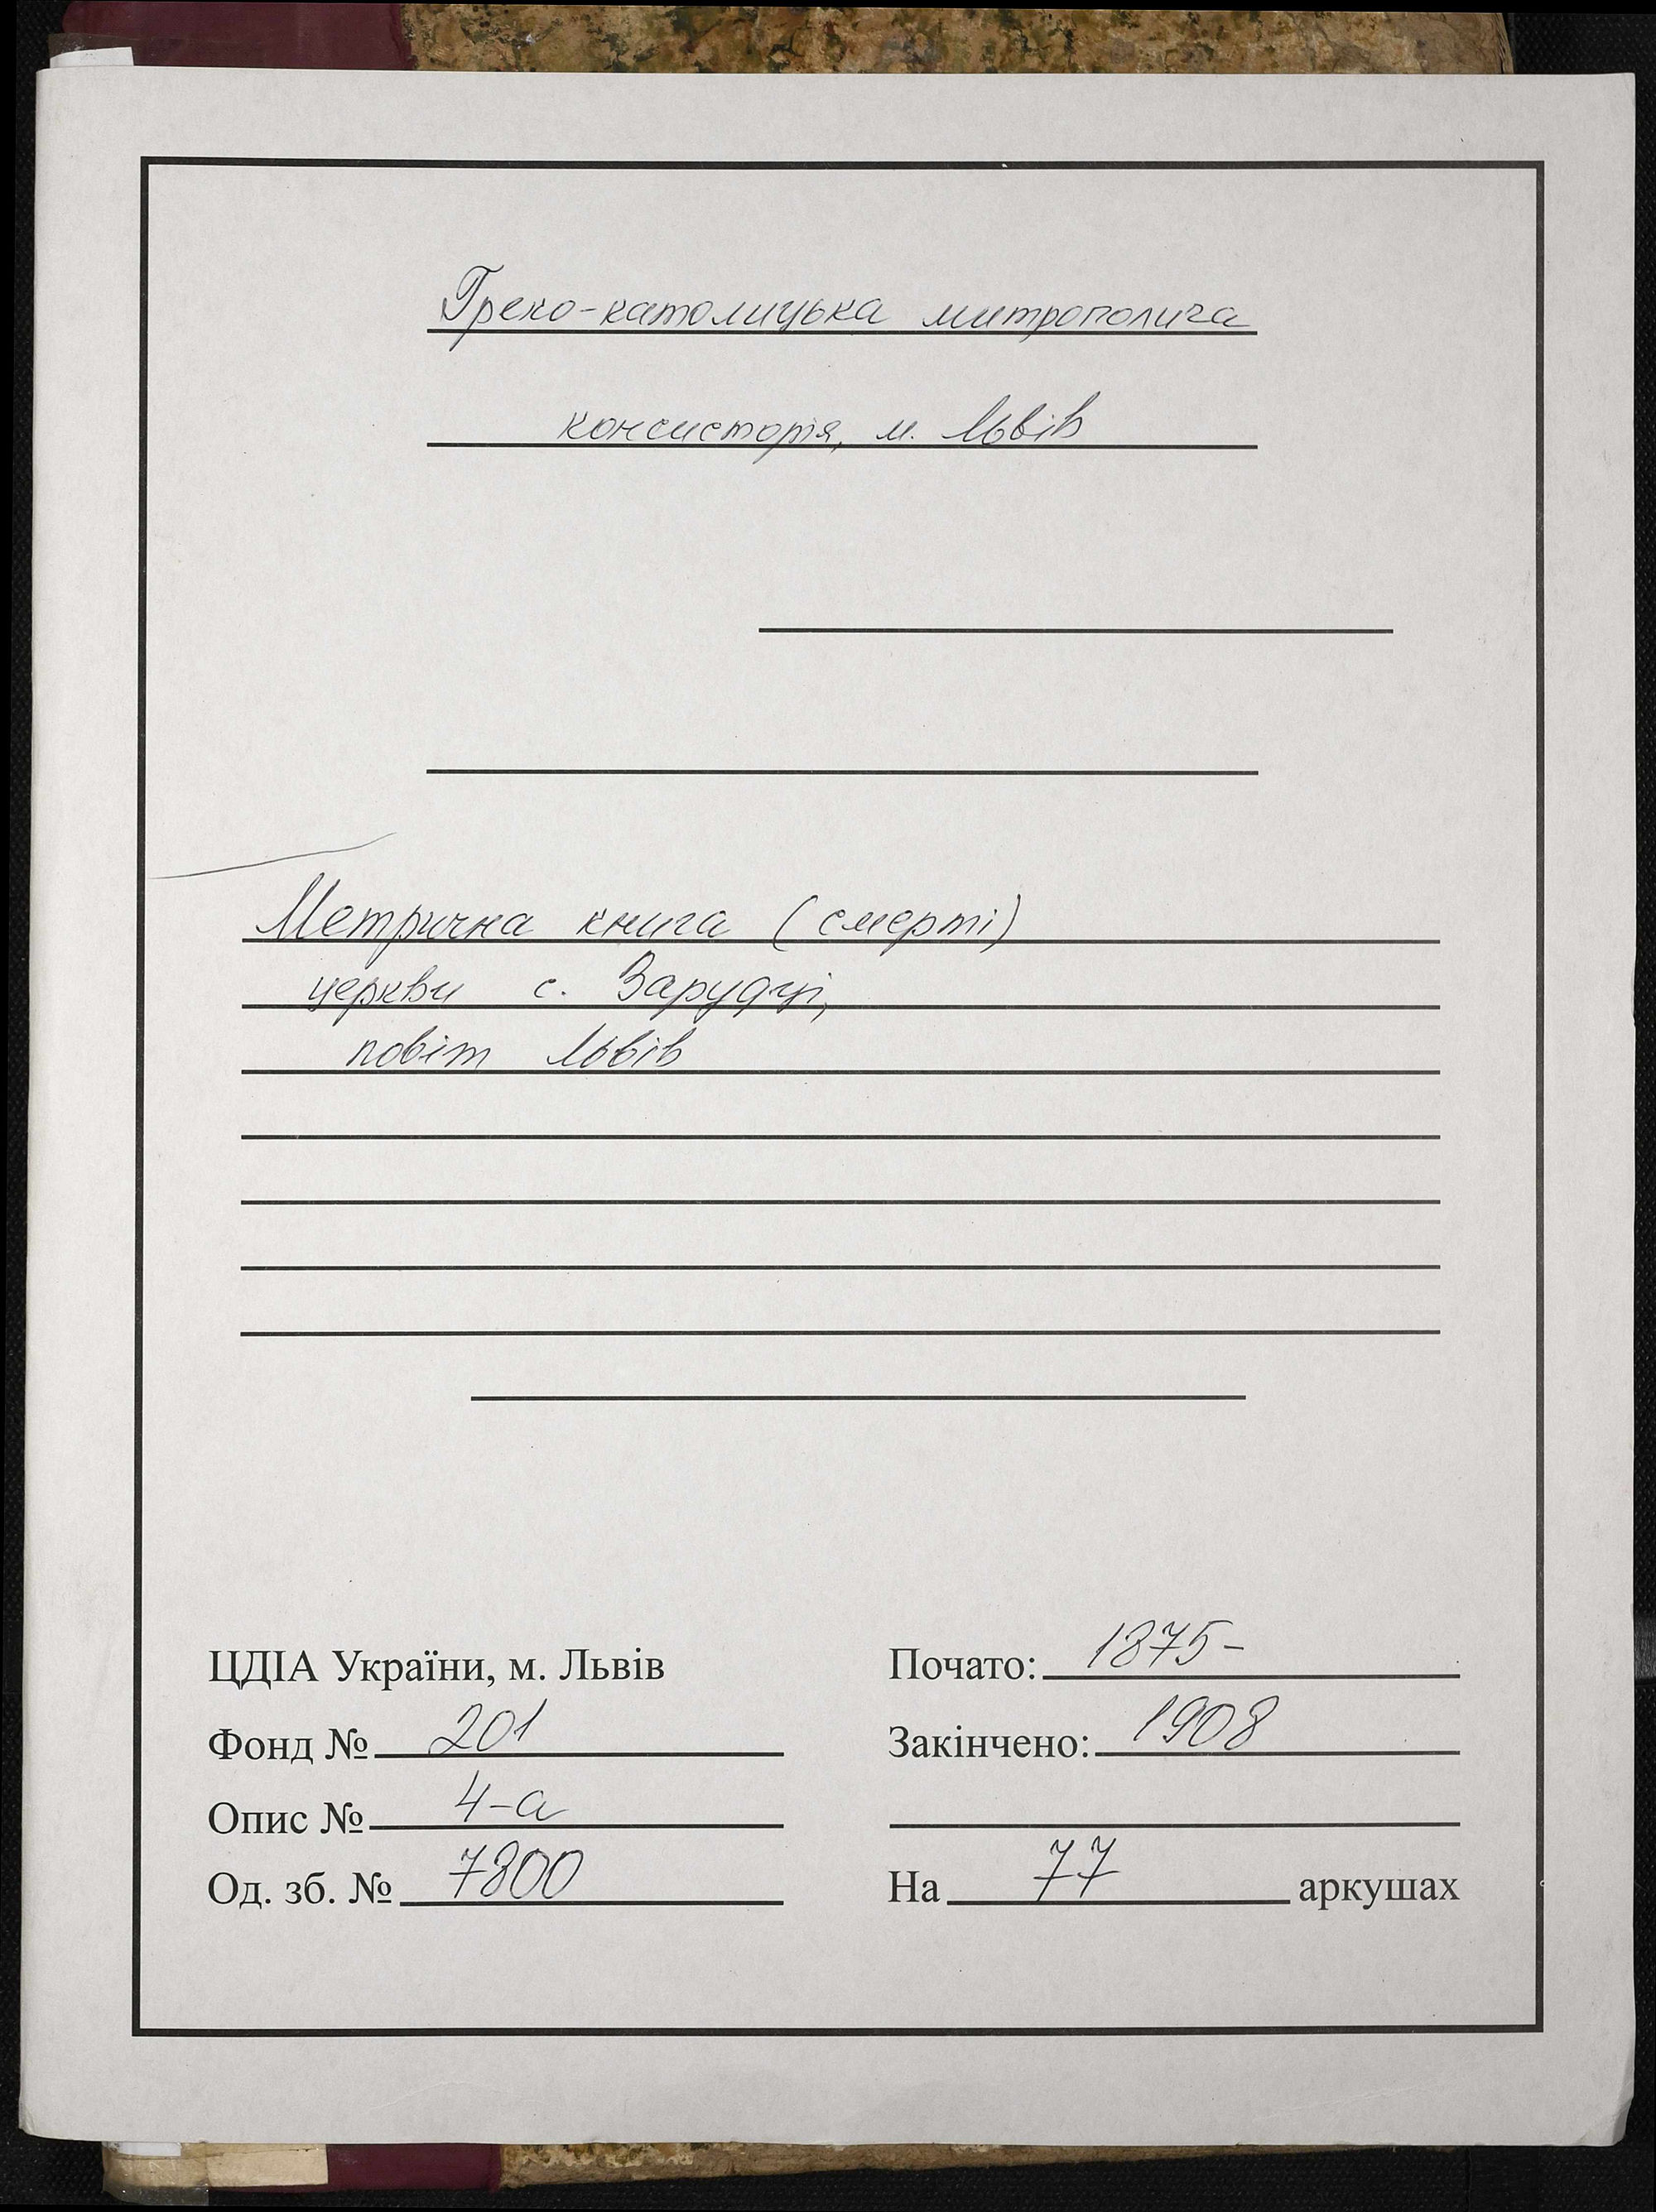 Греко-католицька митрополича
консисторія, м. Львів
Метрична книга (смерті)
церкви с. Зарудці,
повіт Львів
ЦДІА України, м. Львів
Фонд № 201
Опис № 4-а
Од. зб. № 7800
Почато: 1875-
Закінчено: 1908
На 77 аркушах